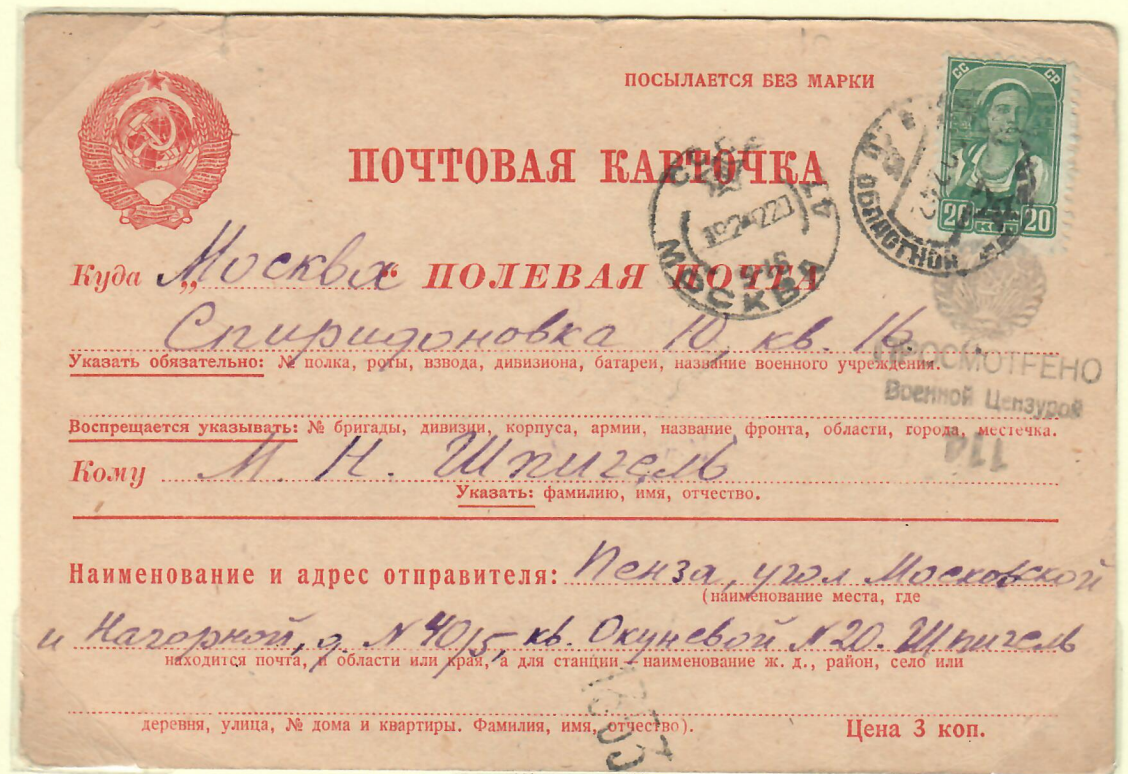 ПОСЫЛАЕТСЯ БЕЗ МАРКИ
СС СР
20 КОП 20
ПОЧТОВАЯ КАРТОЧКА
МОСКВА
ОБЛАСТНОЙ
Куда Москва
„ПОЛЕВАЯ ПОЧТА
Спиридоновка 10, кв. 16.
Указать обязательно: № полка, роты, взвода, дивизиона, батареи, название военного учреждения.
ПРОСМОТРЕНО
Военной Цензурой
114
Воспрещается указывать: № бригады, дивизии, корпуса, армии, название фронта, области, города, местечка.
Кому М. Н. Шпигель
Указать: фамилию, имя, отчество.
Наименование и адрес отправителя: Пенза, угол Московской
(наименование места, где
и Нагорной, д. N 40/5, кв. Окуневой N 20. Шпигель
находится почта, и области или края, а для станции – наименование ж. д., район, село или
деревня, улица, № дома и квартиры. Фамилия, имя, отчество).
Цена 3 коп.